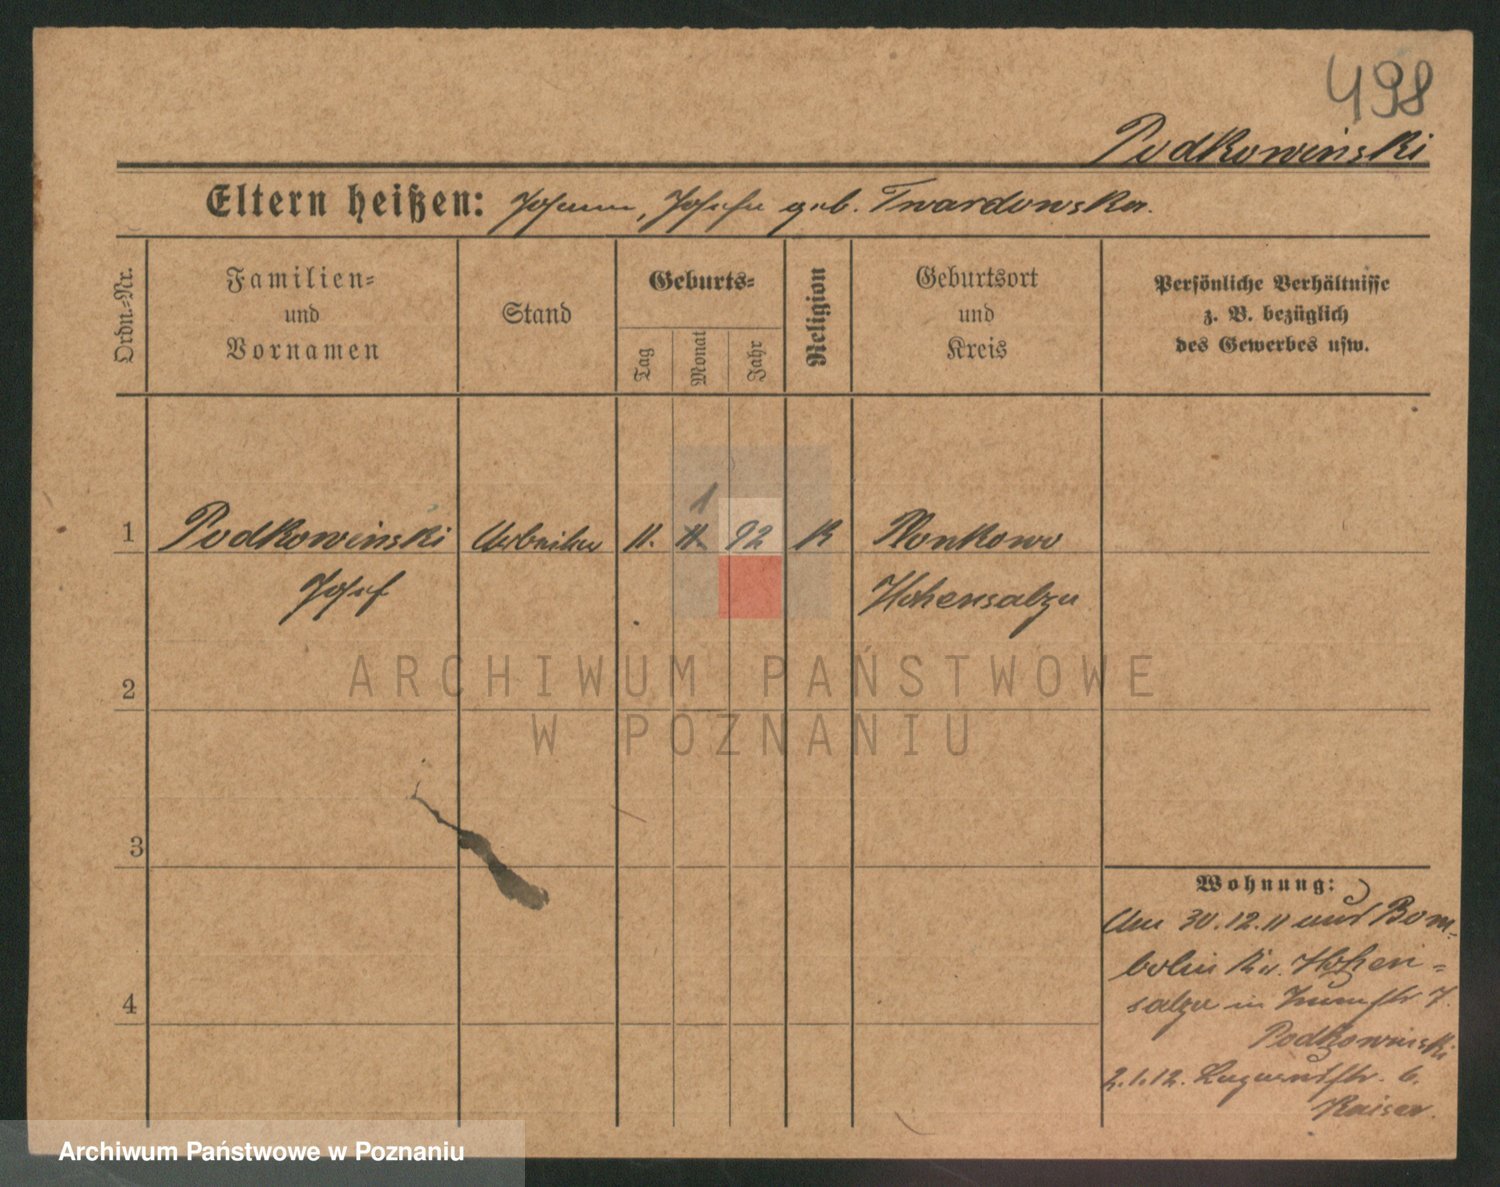 498
Podkowiński
Eltern heißen: Johann, Josefa geb. Twardowska.
Ordn.-Nr.
Familien-
und
Vornamen
Stand
Geburts-
Tag
Monat
Jahr
Religion
Geburtsort
und
Kreis
Persönliche Verhältnisse
z. B. bezüglich
des Gewerbes usw.
1
1 Podkowinski Arbeiter 11. 11. 92 K Plonkowo
Josef Hohensalza
2
3
4
Wohnung:
Am 30.12.11 aus Bom-
bolin Kr. Hohen-
salza in
Podkowinski
2.1.12. 6.
Kaiser.
ARCHIWUM PAŃSTWOWE
W POZNANIU
Archiwum Państwowe w Poznaniu